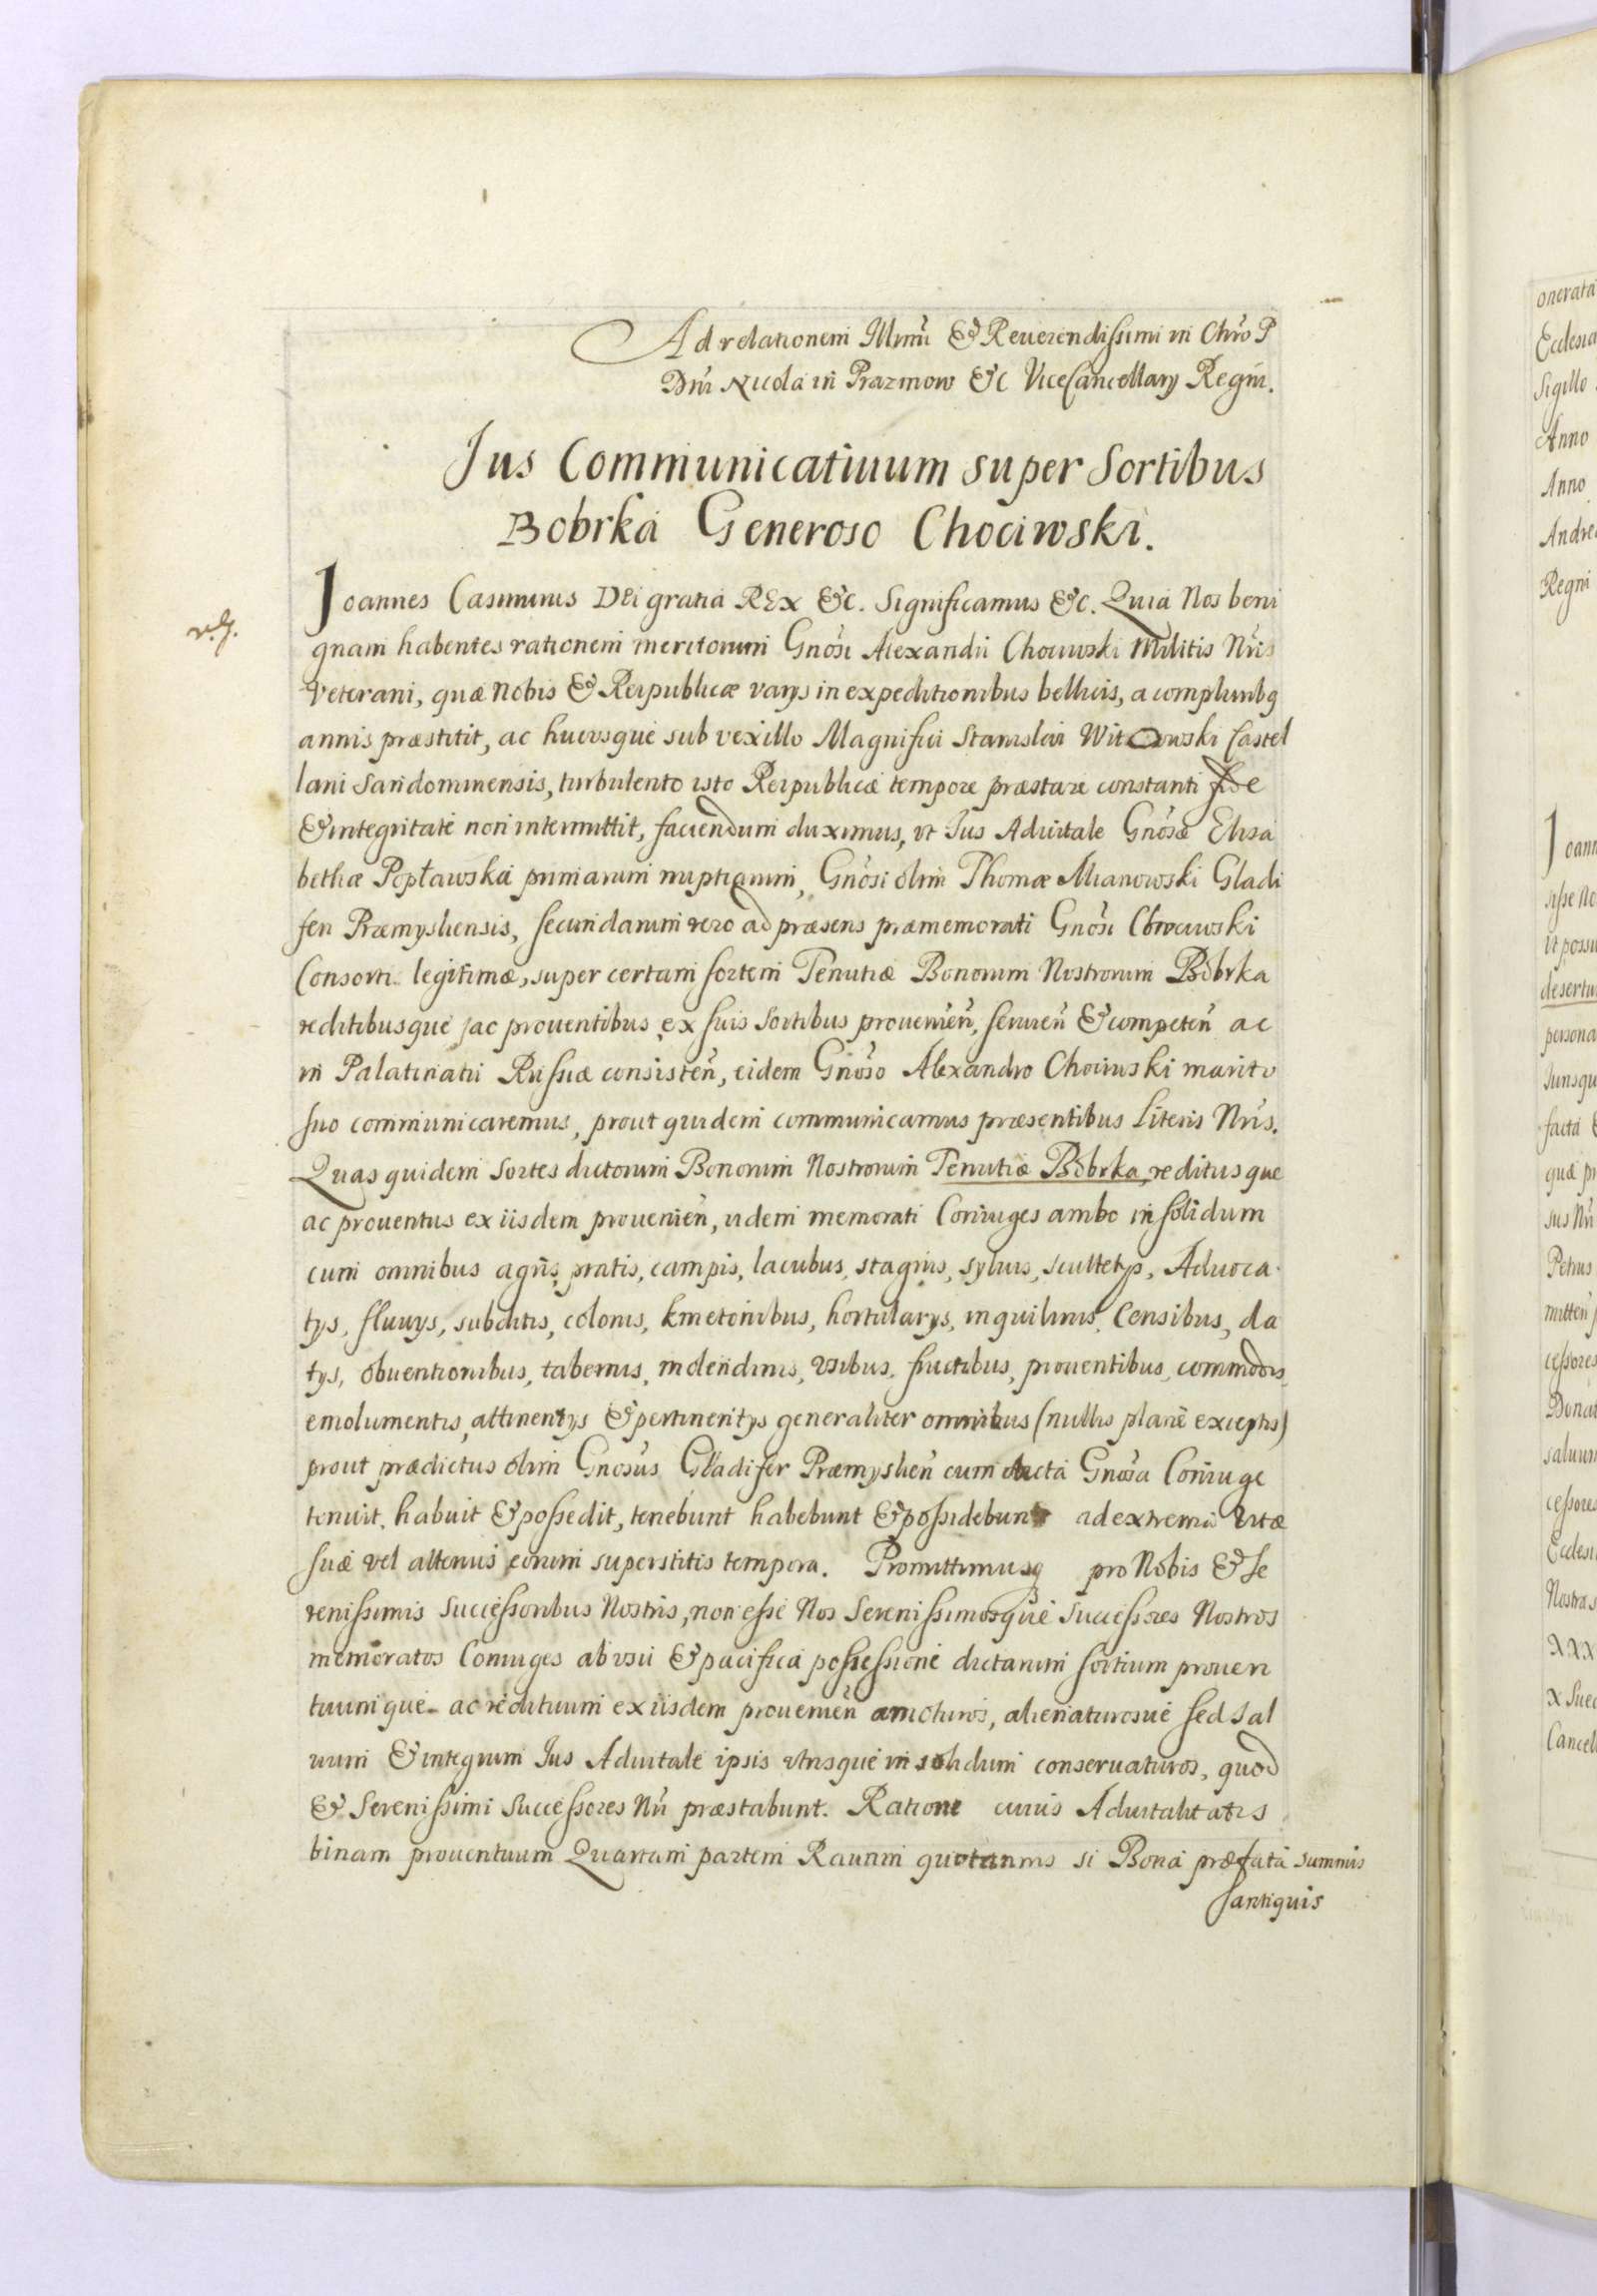 Ad relationem Illmi & Reuerendissimi in Chro P
Dni Nicolai in Prazmow &c ViceCancellarij Regni.
Jus Communicatiuum super Sortibus
Bobrka Generoso Chociwski.
Joannes Casimirus Dei gratia REX &c. Significamus &c. Quia Nos beni
gnam habentes rationem meritorum Gnosi Alexandri Chociwski Militis Nris
veterani, quæ Nobis & Reipublicæ varijs in expeditionibus bellicis, a compluribq
annis præstitit, ac hucusque sub vexillo Magnifici Stanislai Witowski Castel
lani Sandomiriensis, turbulento isto Reipublicæ tempore præstare constanti fide
& integritate non intermittit, faciendum duximus, vt Jus Aduitale Gnosæ Elisa
bethæ Popławska primarum nuptiarum, Gnosi olim Thomæ Mianowski Gladi
feri Præmysliensis, secundarum vero ad præsens præmemorati Gnosi Chociwski
Consorti legitimæ, super certam sortem Tenutiæ Bonorum Nostrorum Bobrka
reditibusque ac prouentibus ex suis Sortibus prouenien, seruien & competen ac
in Palatinatu Russiæ consisten, eidem Gnoso Alexandro Chociwski marito
suo communicaremus, prout quidem communicamus præsentibus Literis Nris.
Quas quidem Sortes dictorum Bonorum Nostrorum Tenutiæ Bobrka, reditusque
ac prouentus ex iisdem prouenien, iidem memorati Coniuges ambo in solidum
cum omnibus agris, pratis, campis, lacubus, stagnis, syluis, scultetijs, Aduoca
tijs, fluuijs, subditis, colonis, kmetonibus, hortularijs, inquilinis, Censibus, da
tijs, obuentionibus, tabernis, molendinis, vsibus, fructibus, prouentibus, commodis,
emolumentis, attinentijs & pertinentijs generaliter omnibus (nullis plane exceptis)
prout prædictus olim Gnosus Gladifer Præmyslien cum dicta Gnosa Coniuge
tenuit, habuit & possedit, tenebunt habebunt & possidebunt ad extrema vitæ
suæ vel alterius eorum superstitis tempora. Promittimusq pro Nobis & Se
renissimis Successoribus Nostris, non esse Nos Serenissimosque Successores Nostros
memoratos Coniuges ab vsu & pacifica possessione dictarum sortium prouen
tuumque ac redituum ex iisdem prouenien amoturos, alienaturosue sed sal
uum & integrum Jus Aduitale ipsis vtrisque in solidum conseruaturos, quod
& Serenissimi Successores Nri præstabunt. Ratione cuius Aduitalitatis
binam prouentuum Quartam partem Rauam quotannis si Bona præfata summis
antiquis
onerata
Ecclesia
Sigillo
Anno
Anno
Andre
Regni
Joann
desertu
persona
facta
quæ pr
sus Nri
Petrus
mitten
cessores
Donat
saluum
cessores
Ecclesi
Nostras
XXX
X Suec
Cancell